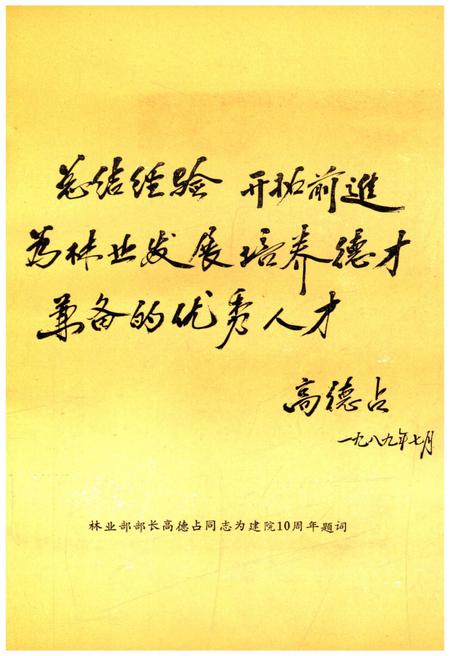 总结经验 开拓前進
为林业发展培养德才
兼备的优秀人才
高德占
一九八九年七月
林业部部长高德占同志为建院10周年题词